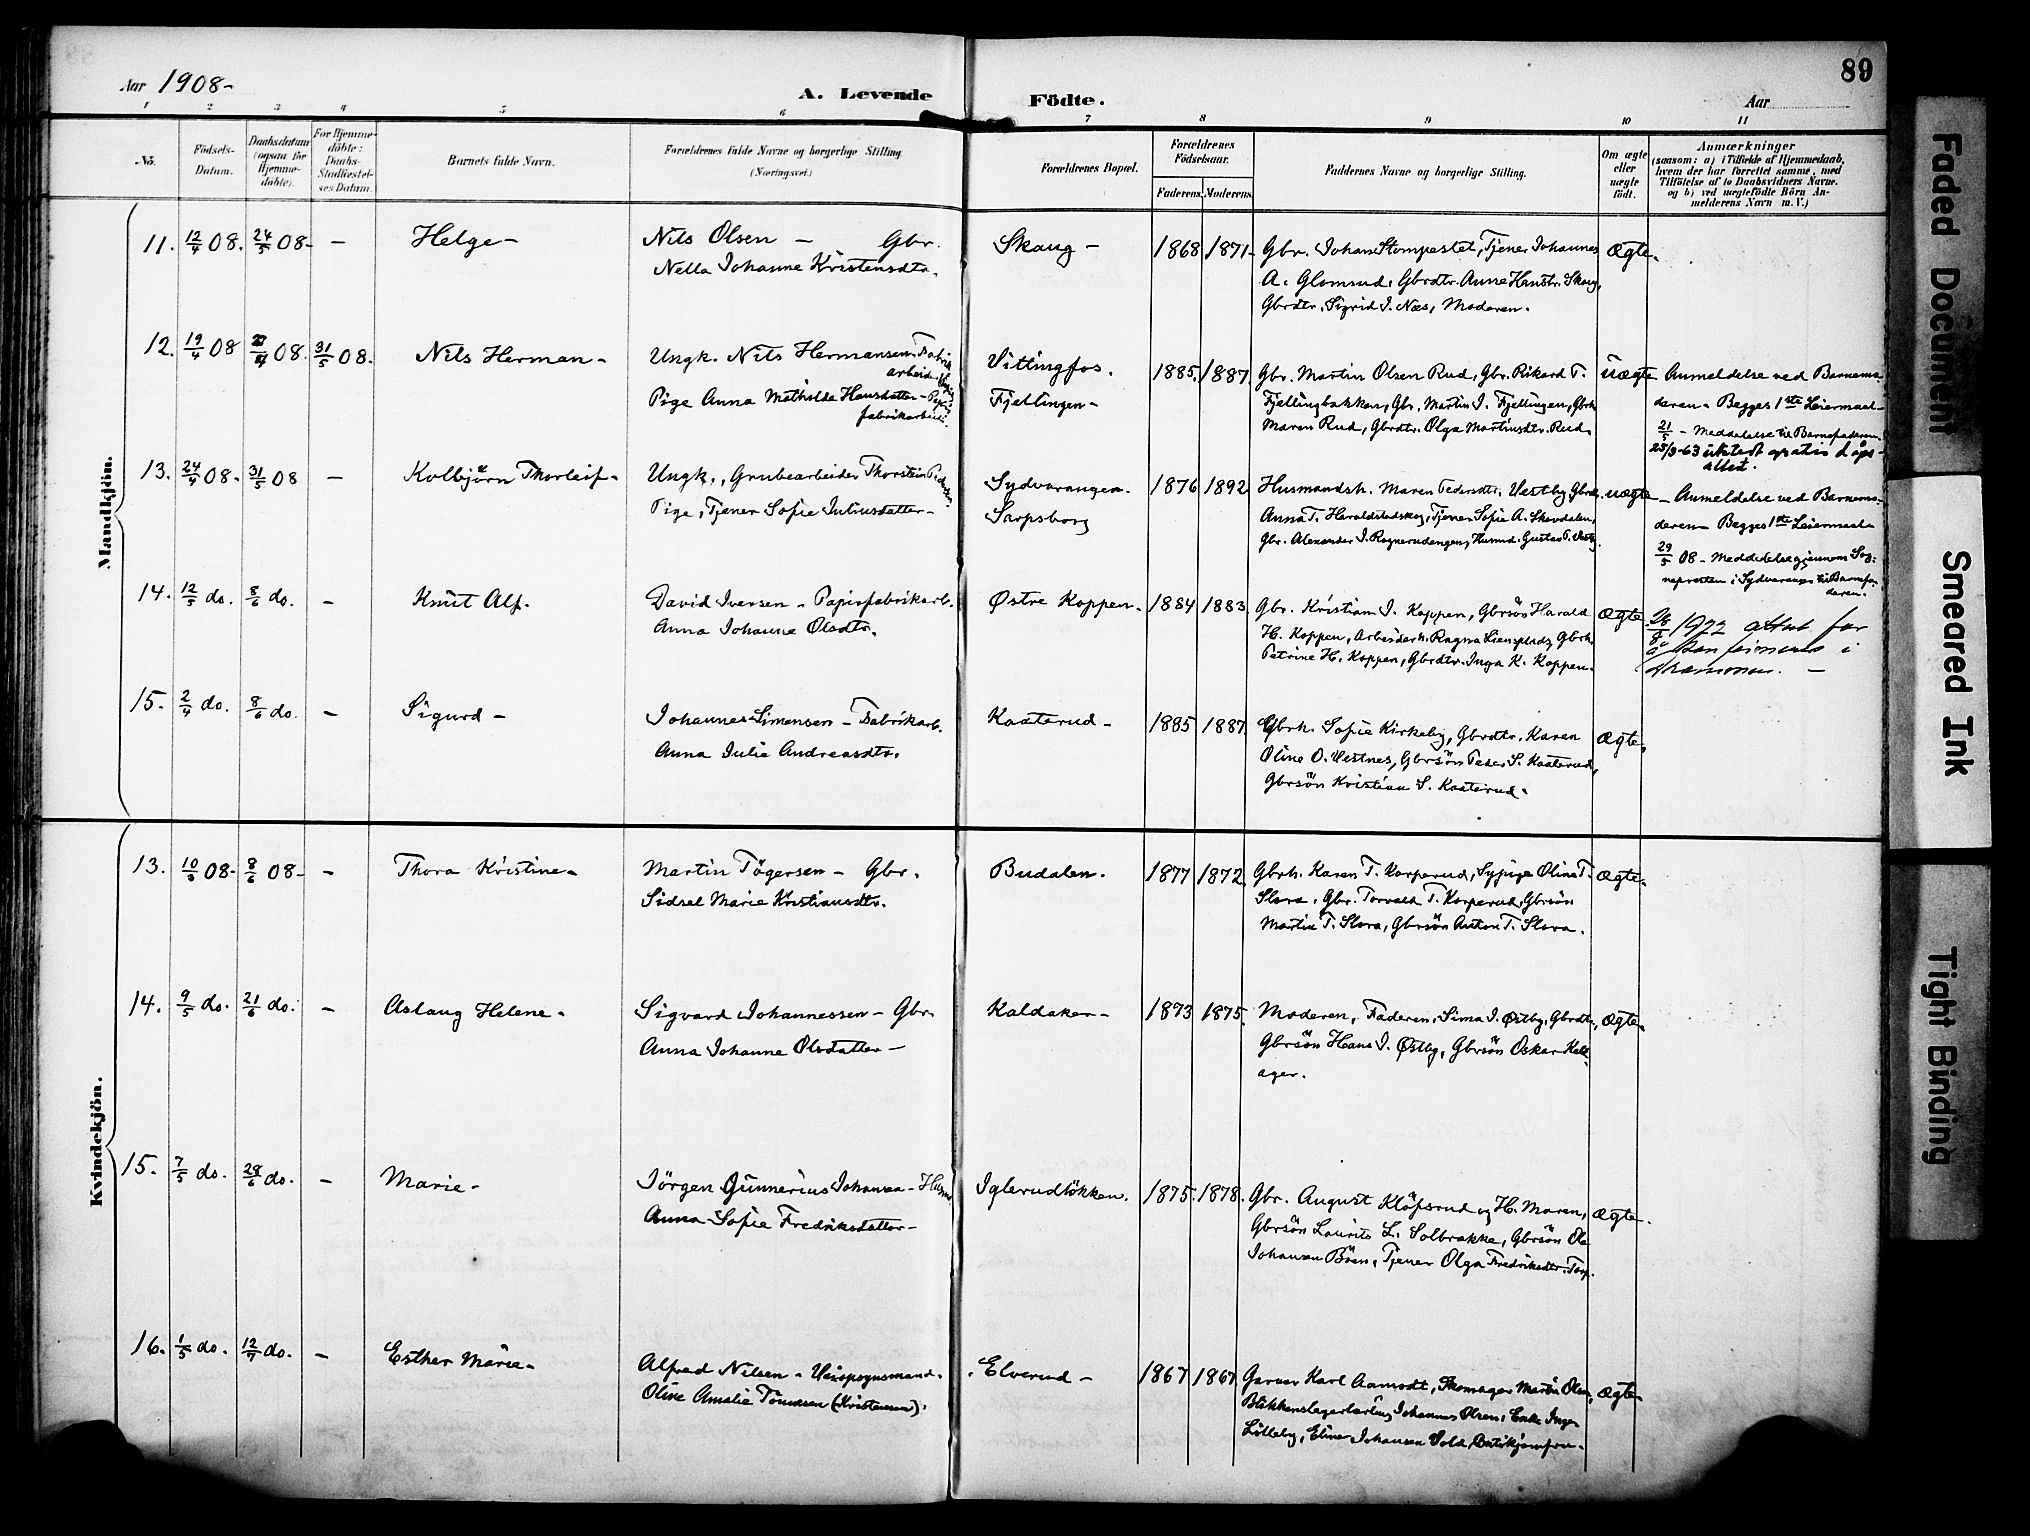 Aar 1908-
A. Levende Födte.
Aar
89
1 2 3 4 5 6 7 8 9 10 11
No.
Födsels-
Datum.
Daabsdatum
(ogsaa for
Hjemme-
döbte).
For Hjemme-
döbte:
Daabs-
Stadfæstel-
ses Datum.
Barnets fulde Navn.
Forældrenes fulde Navne og borgerlige Stilling.
(Næringsvei.)
Forældrenes Bopæl.
Forældrenes
Födselsaar.
Faderens. Moderens.
Faddernes Navne og borgerlige Stilling.
Om ægte
eller
uægte
födt.
Anmærkninger
(saasom: a) i Tilfælde af Hjemmedaab,
hvem der har forrettet samme, med
Tilföielse af to Daabsvidners Navne.
og b) ved uægtefödte Börn An-
melderens Navn m. V.)
Mandkjön.
11. 12/4 08. 24/5 08- - Helge - Nils Olsen - Gbr. Skaug - 1868 1871- Gbr. Johan Stompestet, Tjener Johannes Ægte.
Nella Johanne Kristensdtr. A. Glomsrud, Gbrdtr. Anne Hansdtr. Skaug,
Gbrdtr. Sigrid J. Næs, Moderen.
12. 19/4 08 08. 31/5 08. Nils Herman - Ungk. Nils Hermansen Fabrik
arbeider Vittingfos. 1885. 1887 Gbr. Martin Olsen Rud, Gbr. Rikard T. Uægte Anmeldelse ved Barnemo-
Pige Anna Mathilde Hansdatter - Papir
fabrikarbeid. Fjellingen - Fjellingbakken, Gbr. Martin J. Fjellingen, Gbrk. deren - Begges 1ste Leiermaal -
Maren Rud, Gbrdtr. Olga Martinsdtr. Rud. 21/5 - Meddelelse til Barnefaderen.
25/9-63 utstedt gratis dåps-
attest.
13. 24/4 08- 31/5 08 - Kolbjörn Thorleif - Ungk., Grubearbeider Thorstein Pedersen Sydvaranger. 1876 1892 Husmandsk. Maren Pedersdtr. Vestby, Gbrdtr. uægte - Anmeldelse ved Barnemo-
Pige, Tjener Sofie Juliusdatter - Sarpsborg Anna T. Haraldstadskog, Tjener Sofie A. Skovdalen, deren - Begges 1ste Leiermaal -
Gbr. Alexander J. Rognerudengen, Husmd. Gustav P. Vestby. 29/5 08 - Meddelelse gjennem Sog-
nepresten i Sydvaranger til Barnefa-
deren.
14. 12/5 do. 8/6 do. - Knut Alf. David Iversen - Papirfabrikarb. Østre Koppen. 1884 1883 Gbr. Kristian J. Koppen, Gbrsön Harald Ægte. 1972 attest for
Anna Johanne Olsdtr. H. Koppen, Arbeiderk. Ragna Liensplads, Gbrk.
Petrine H. Koppen, Gbrdtr. Inga K. Koppen.
15. 2/4 do. 8/6 do. - Sigurd - Johannes Simensen - Fabrikarb. Kaaterud - 1885 1887 Gbrk. Sofie Kirkeby, Gbrdtr. Karen Ægte.
Anna Julie Andreasdtr. Oline O. Vestnes, Gbrsön Peder S. Kaaterud,
Gbrsön Kristian S. Kaaterud.
Kvindekjön.
13. 10/3 08- 8/6 08- - Thora Kristine - Martin Tögersen - Gbr. Budalen. 1877 1872 Gbrk. Karen T. Korperud, Sypige Olina T. Ægte.
Sidsel Marie Kristiansdtr. Slora, Gbr. Torvald T. Korperud, Gbrsön
Martin T. Slora, Gbrsön Anton T. Slora.
14. 9/5 do. 21/6 do. - Aslaug Helene - Sigvard Johannessen - Gbr. Kaldaker - 1873 1875. Moderen, Faderen, Sina J. Østby, Gbrdtr, Ægte.
Anna Johanne Olsdatter - Gbrsön Hans J. Østby, Gbrsön Oskar Kald-
ager.
15. 7/5 do. 28/6 do. - Marie - Jörgen Gunnerius Johansen - Husmd Iglerudlökken. 1875. 1878. Gbr. August Klöfsrud og H. Maren, Ægte.
Anna Sofie Fredriksdatter - Gbrsön Laurits L. Solbrække, Gbrsön Ole
Johansen Böen, Tjener Olga Fredriksdtr. Torp.
16. 1/5 do. 12/7 do. - Esther Marie - Alfred Nilsen - Veiopsynsmand. Elverud - 1867 1867 Garver Karl Aamodt, Skomager Martin Olsen, Ægte
Oline Amalie Tomasen (Kristensen). Blikkenslagerlærling Johannes Olsen, Enke Inga
Lötteby, Eline Johansen Vold, Butikjomfru.
Faded Document
Smeared Ink
Tight Binding